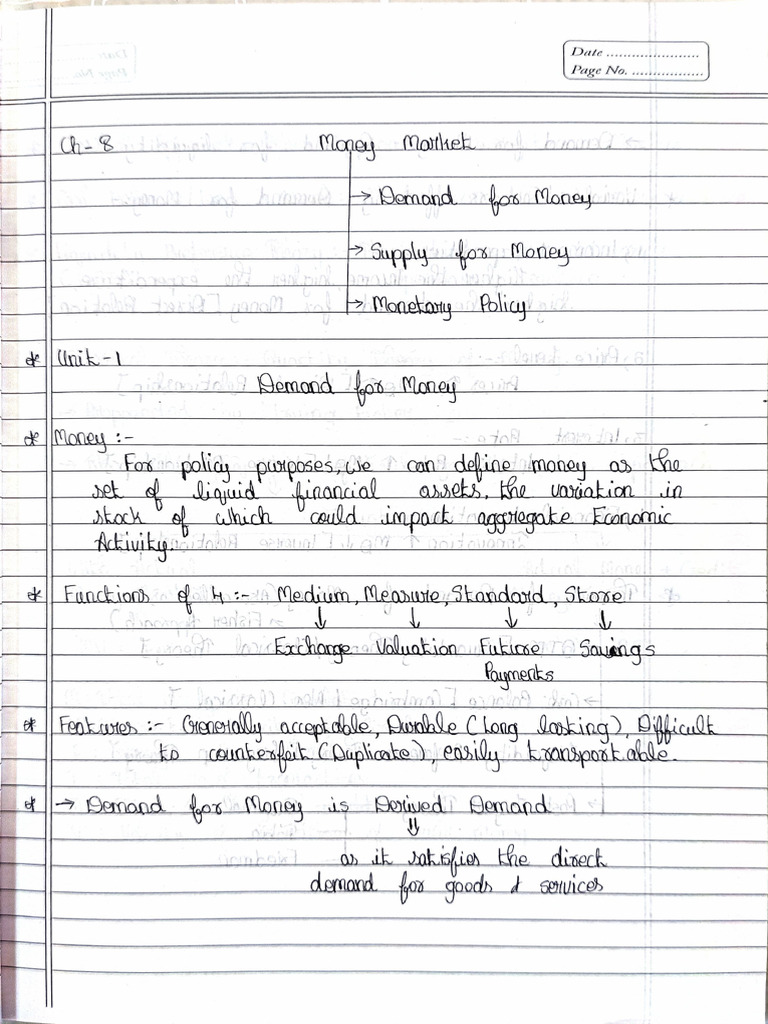 Date ......................
Page No. .................
Ch-8 Money Market
→ Demand for Money
→ Supply for Money
→ Monetary Policy
* Unit-1
Demand for Money
* Money :-
For policy purposes, we can define money as the
set of liquid financial assets, the variation in
stock of which could impact aggregate Economic
Activity.
* Functions of 4 :- Medium, Measure, Standard, Store
↓ ↓ ↓ ↓
Exchange Valuation Future Savings
Payments
* Features :- Generally acceptable, Durable (Long lasting), Difficult
to counterfeit (Duplicate), easily transportable.
* → Demand for Money is Derived Demand
⇓
as it satisfies the direct
demand for goods & services